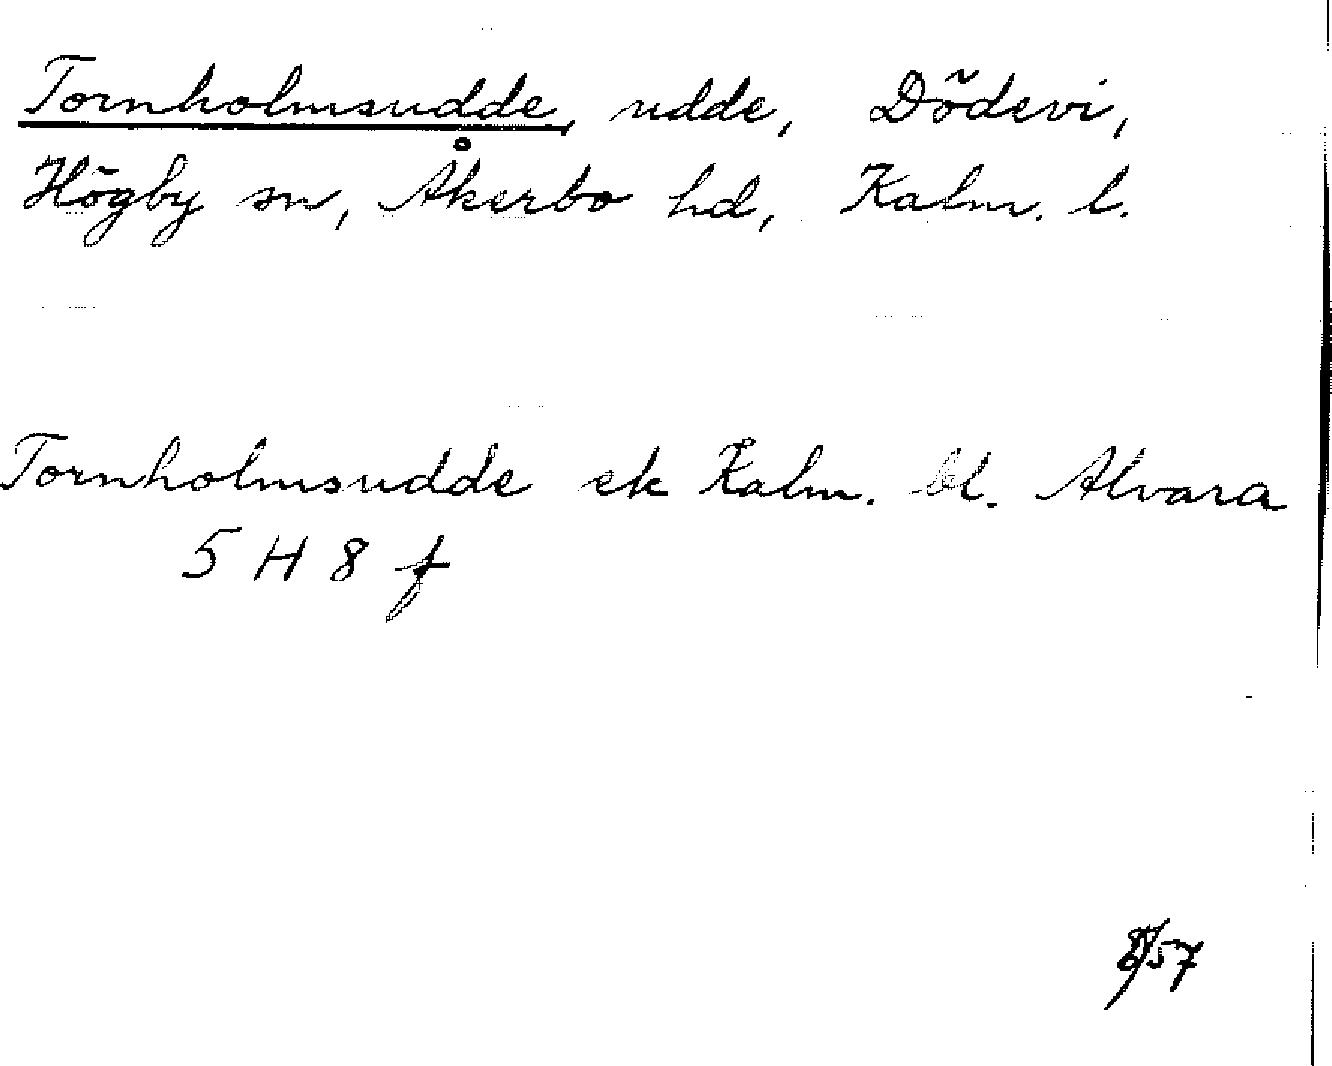 Tornholmsudde, udde, Dödevi,
Högby sn, Åkerbo hd, Kalm. l.
Tornholmsudde ek Kalm. bl. Alvara
5 H 8 f